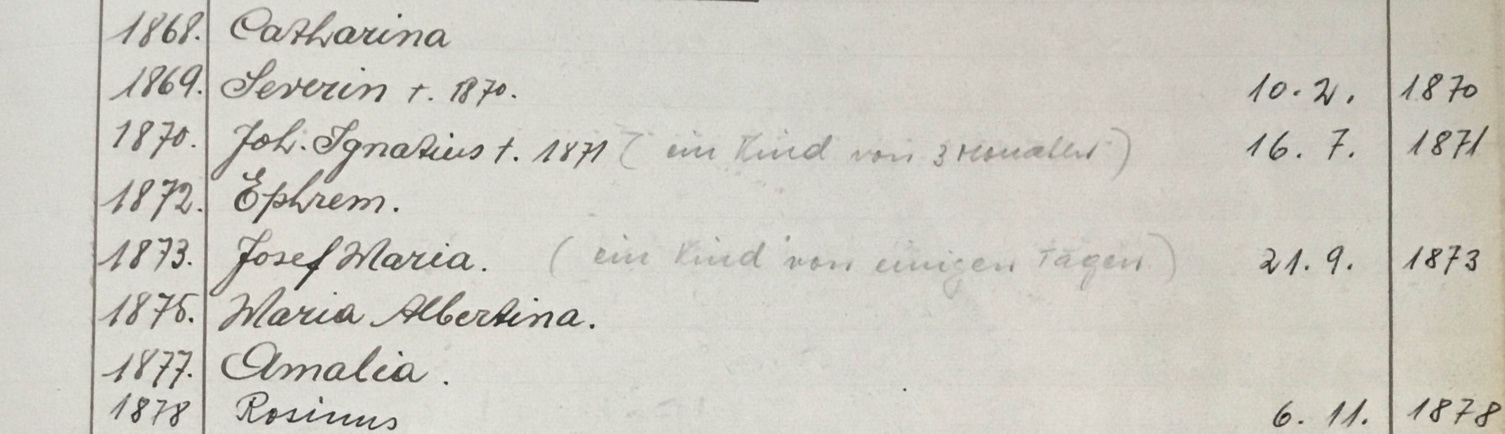 1868. Catharina
1869. Severin †. 1870. 10. 2. 1870
1870. Joh. Ignatius †. 1871 ( ein Kind von 3 Monaten ) 16. 7. 1871
1872. Ephrem.
1873. Josef Maria. ( ein Kind von einigen Tagen ) 21. 9. 1873
1875. Maria Albertina.
1877. Amalia.
1878 Rosinus 6. 11. 1878